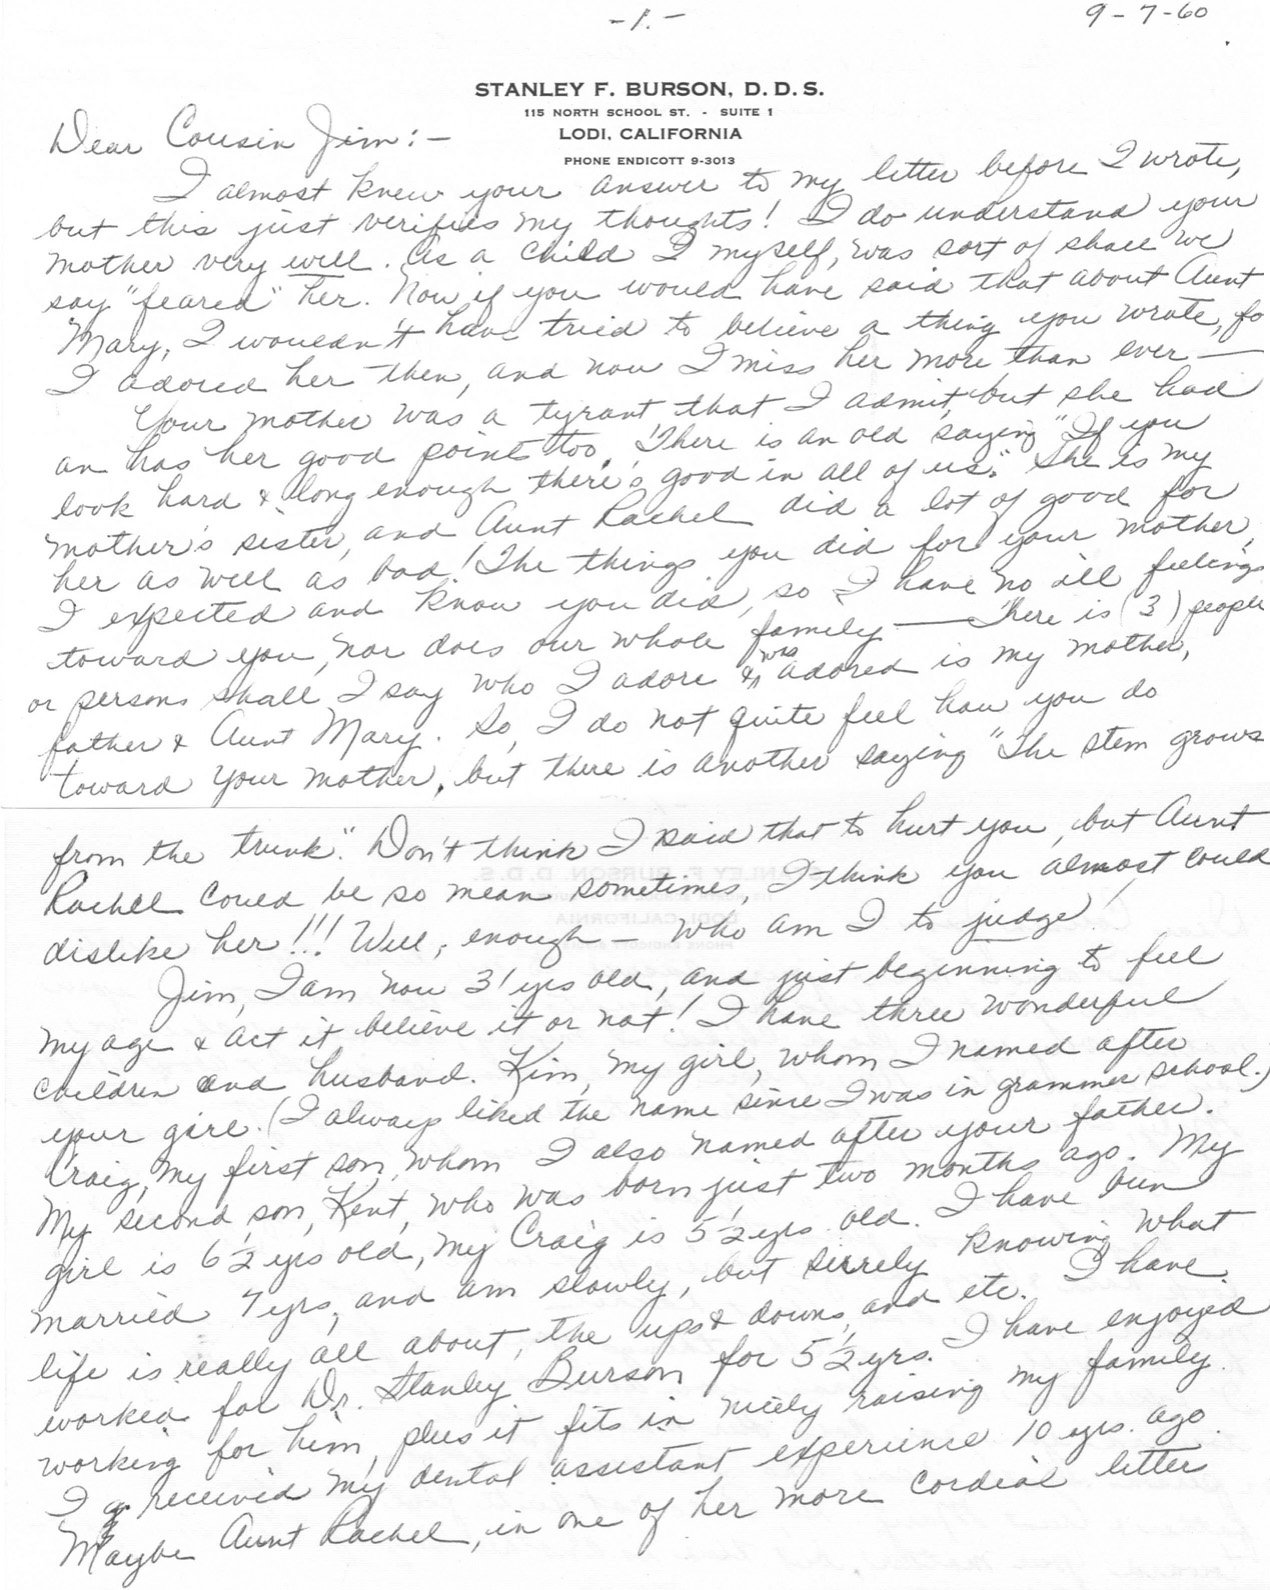 -1.-
9-7-60
STANLEY F. BURSON, D.D.S.
115 NORTH SCHOOL ST. - SUITE 1
LODI, CALIFORNIA
PHONE ENDICOTT 9-3013
Dear Cousin Jim:-
I almost knew your answer to my letter before I wrote,
but this just verifies my thoughts! I do understand your
mother very well. As a child I myself, was sort of shall we
say "feared" her. Now if you would have said that about Aunt
Mary, I wouldn't have tried to believe a thing you wrote, fo
I adored her then, and now I miss her more than ever —
Your mother was a tyrant that I admit, but she had
an has her good point too. There is an old saying "If you
look hard & long enough there's good in all of us." She is my
mother's sister, and Aunt Rachel did a lot of good for
her as well as bad! The things you did for your mother,
I expected and know you did, so I have no ill feelings
toward you, nor does our whole family — There is (3) people
or persons shall I say who I adore & was adored is my mother,
father & Aunt Mary. So, I do not quite feel how you do
toward your mother, but there is another saying "The stem grows
from the trunk." Don't think I said that to hurt you, but Aunt
Rachel could be so mean sometimes, I think you almost could
dislike her!!! Well, enough — who am I to judge!
Jim, I am now 31 yrs old, and just beginning to feel
my age & act it believe it or not! I have three wonderful
children and husband. Kim, my girl, whom I named after
your girl. (I always liked the name since I was in grammer school.)
Craig, my first son, whom I also named after your father.
My second son, Kent, who was born just two months ago. My
girl is 6½ yrs old, my Craig is 5½ yrs old. I have bun
married 7 yrs, and am slowly, but surely knowing what
life is really all about, the ups & downs, and etc. I have
worked for Dr. Stanley Burson for 5½ yrs. I have enjoyed
working for him, plus it fits in nicely raising my family.
I received my dental assistant experience 10 yrs. ago.
Maybe Aunt Rachel, in one of her more cordial letter